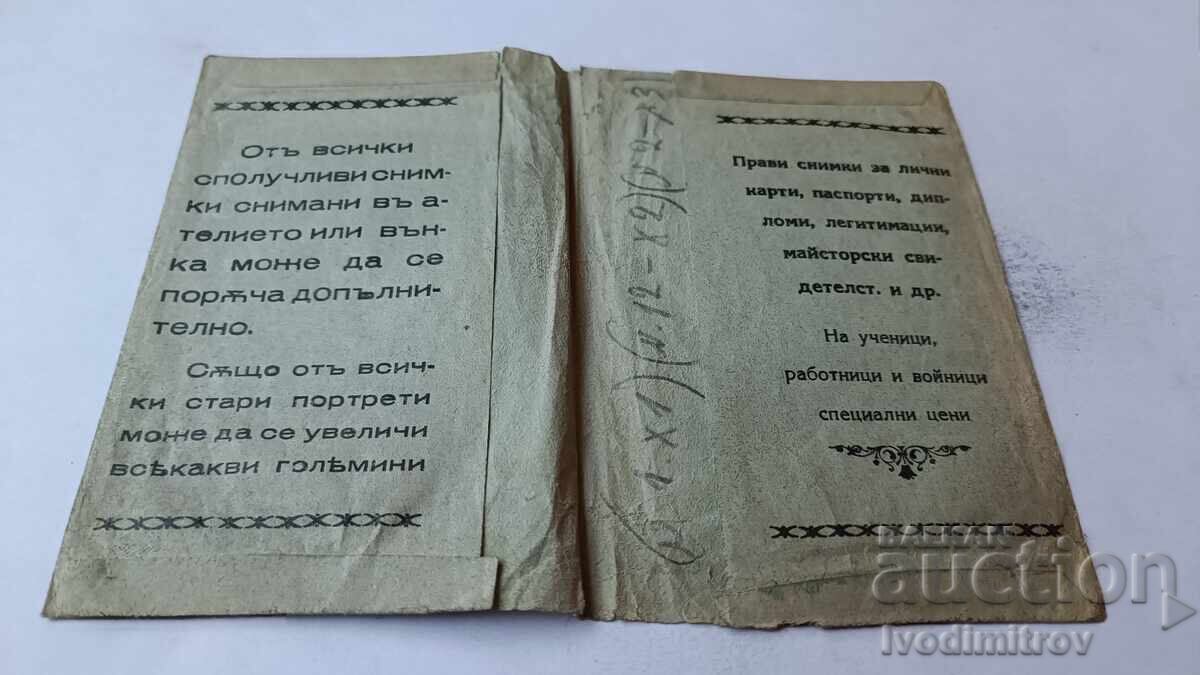 Отъ всички
сполучливи сним-
ки снимани въ а-
телието или вън-
ка може да се
порѫча допълни-
телно.
Сѫщо отъ всич-
ки стари портрети
може да се увеличи
всѣкакви голѣмини
Прави снимки за лични
карти, паспорти, дип-
ломи, легитимации,
майсторски сви-
детелст. и др.
На ученици,
работници и войници
специални цени
БАЛКАН
auction
Ivodimitrov